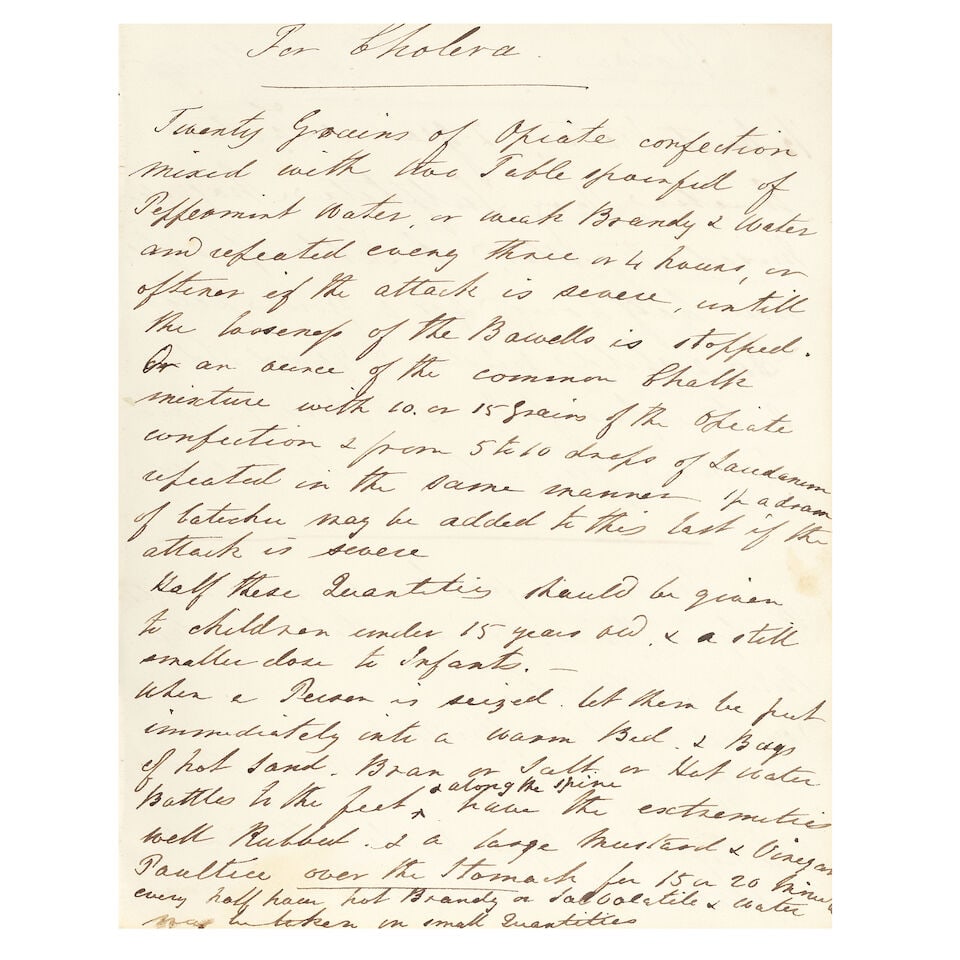 For Cholera
Twenty Grains of Opiate confection
mixed with two Table spoonful of
Peppermint Water, or weak Brandy & Water
and repeated every three or 4 hours, or
oftener if the attack is severe, untill
the looseness of the Bowells is stopped.
Or an ounce of the common Chalk
mixture with 10. or 15 grains of the Opiate
confection & from 5 to 10 drops of Laudanum
repeated in the same manner a dram
of Catechu may be added to this last if the
attack is severe
Half these Quantities should be given
to children under 15 years old, & a still
smaller dose to Infants. —
When a Person is seized. let them be put
immediately into a warm Bed. & Bags
of hot Sand. Bran or Salt or Hot water
& along the spine
Bottles to the feet ^ have the extremities
well Rubbed. & a large Mustard & Vinegar
Poultice over the Stomach for 15 or 20 Minutes
every half hour, hot Brandy or Salvolatile & water
may be taken in small Quantities